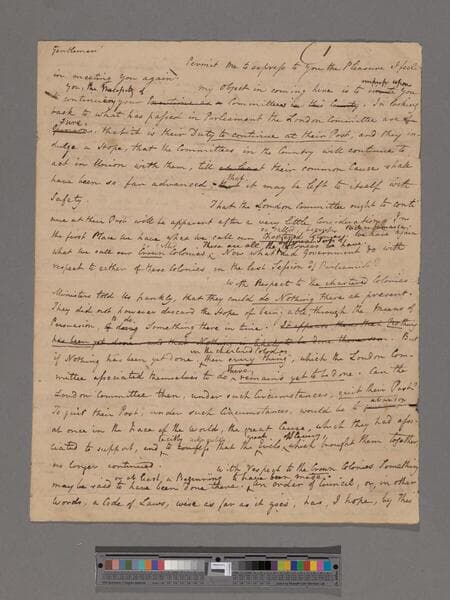 Gentlemen
Permit me to express to you the Pleasure I feel
in meeting you again. my Object in coming here is to impress upon you
you, the Propriety of
continuing your Committee in looking
back to what has passed in Parliament the London Committee are of
Opinion, that it is their Duty to continue at their Post, and they in-
dulge a Hope, that the Committees in the Country will continue to
act in Union with them, till their common Cause shall
have been so far advanced, that it may be left to itself with
Safety.
That the London Committee ought to conti
nue at their Post will be apparent after a very little Consideration. In
the first Place we have what we call our Chartered Colonies
we have again
what we call our Crown Colonies. These are all the Colonies we have
Now what has Government do with
respect to either of these Colonies in the last Session of Parliament?
With Respect to the chartered Colonies
Ministers told us frankly, that they could do Nothing there at present.
They did not however discard the Hope of being able, through the Means of
Persuasion, to do Something there in time.
But
in the chartered Colonies
if Nothing has been yet done, then every thing, which the London Com-
mittee associated themselves to do there remains yet to be done. Can the
London Committee then, under such Circumstances, quit their Post?
To quit their Post, under such Circumstances, would be to abandon
at once in the Face of the World, the great Cause, which they had asso-
ciated to support, and to confess that the Evils, which brought them together
tacitly
no longer continued. With respect to the Crown Colonies Something
or at least, a Beginning to have been made.
may be said to have been done there. An order of Council, or, in other
Words, a Code of Laws, wise as far as it goes, has, I hope, by this